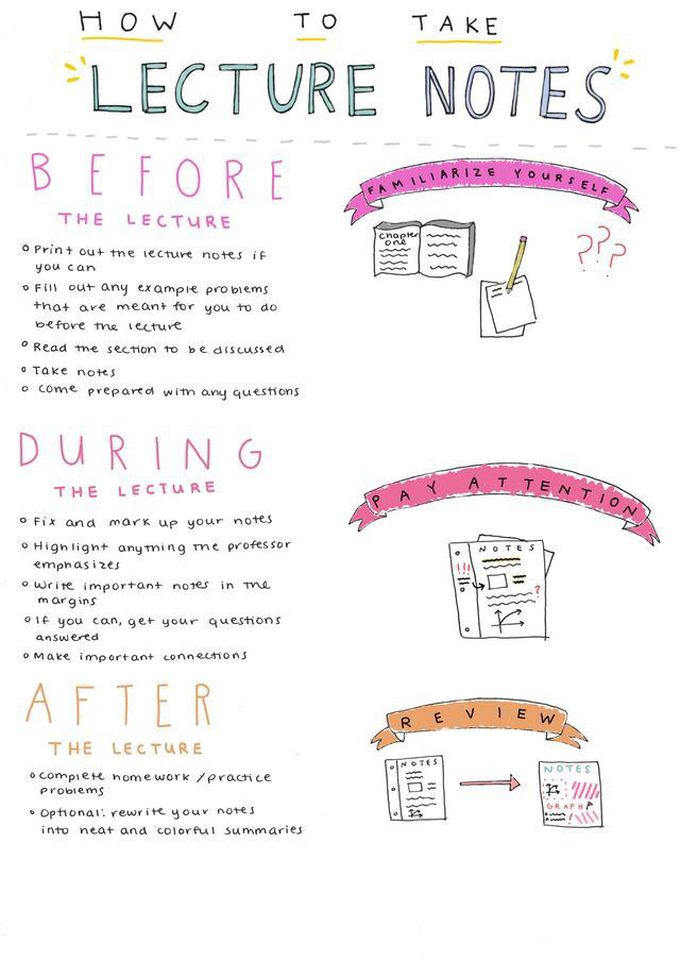 HOW TO TAKE
LECTURE NOTES
BEFORE
THE LECTURE
Print out the lecture notes if
you can
Fill out any example problems
that are meant for you to do
before the lecture
Read the section to be discussed
Take notes
Come prepared with any questions
FAMILIARIZE YOURSELF
Chapter
one
???
DURING
THE LECTURE
Fix and mark up your notes
Highlight anything the professor
emphasizes
Write important notes in the
margins
If you can, get your questions
answered
Make important connections
PAY ATTENTION
NOTES
!!!
?
AFTER
THE LECTURE
Complete homework / practice
problems
Optional: rewrite your notes
into neat and colorful summaries
REVIEW
NOTES
NOTES
GRAPH
!